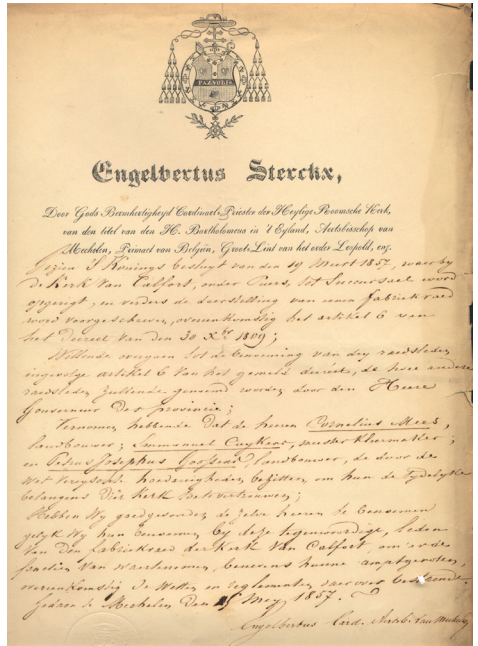 PAX VOBIS
Engelbertus Sterckx,
Door Gods Bermhertigheyd Cardinael-Priester der Heylige Roomsche Kerk,
van den titel van den H. Bartholomeus in 't Eyland, Aertsbisschop van
Mechelen, Primaet van Belgiën, Groote Lint van het order Leopold, enz.
Gezien 's Konings besluyt van den 19 Meert 1857, waer by
de Kerk van Calfort, onder Puers, tot Succursael word
opgeregt, en verders de daerstelling van eenen fabriekraed
word voorgeschreven, overeenkomstig het artikel 6 van
het Decreet van den 30 Xber 1809;
Willende overgaen tot de benoeming van dry raedsleden
ingevolge artikel 6 van het gemeld decreet, de twee andere
raedsleden zullende genoemd worden door den Heere
Gouverneur der provincie;
Vernomen hebbende dat de heeren Cornelius Mees,
landbouwer; Emmanuel Cuykens, meester kleermaker;
en Petrus Josephus Goossens, landbouwer, de door de
Wet vereyschte hoedanigheden bezitten, om hun de tydelyke
belangens dier Kerk toe te vertrouwen;
Hebben Wy goedgevonden de zelve heeren te benoemen
gelyk Wy hen benoemen by deze tegenwoordige, leden
van den fabriekraed der Kerk van Calfort, om er de
functien van waertenemen, benevens hunne amptgenoten,
overeenkomstig de Wetten en reglementen daer over bestaende.
Gedaen te Mechelen den 15 Mey 1857.
Engelbertus Card. Aertsb. van Mechelen